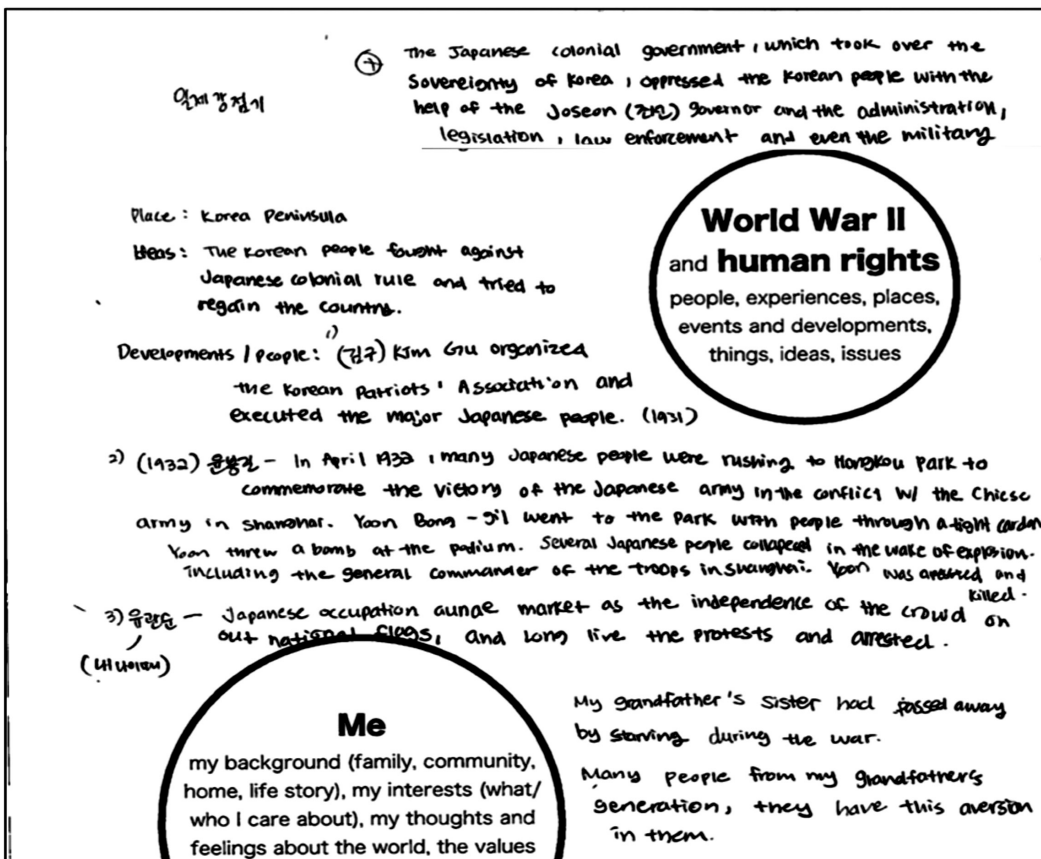 일제강점기
⊕ The Japanese colonial government, which took over the
Sovereignty of Korea, oppressed the Korean people with the
help of the Joseon governor and the administration,
legislation, law enforcement and even the military
World War II
and human rights
people, experiences, places,
events and developments,
things, ideas, issues
Place: Korea Peninsula
Ideas: The Korean people fought against
Japanese colonial rule and tried to
regain the country.
Developments / people: 1) (김구) Kim Gu organized
the Korean Patriots' Association and
executed the major Japanese people. (1931)
2) (1932) 윤봉길 - In April 1932, many Japanese people were rushing to Hongkou Park to
commemorate the victory of the Japanese army in the conflict w/ the
army in Shanghai. Yoon Bong-gil went to the park with people through a tight
Yoon threw a bomb at the podium. Several Japanese people collapsed in the wake of explosion.
including the general commander of the troops in Shanghai. Yoon was arrested and
killed.
3) 유관순 - Japanese occupation aunae market as the independence of the crowd on
out national flags, and long live the protests and arrested.
My grandfather's sister had passed away
by starving during the war.
Many people from my grandfather's
generation, they have this aversion
in them.
Me
my background (family, community,
home, life story), my interests (what/
who I care about), my thoughts and
feelings about the world, the values